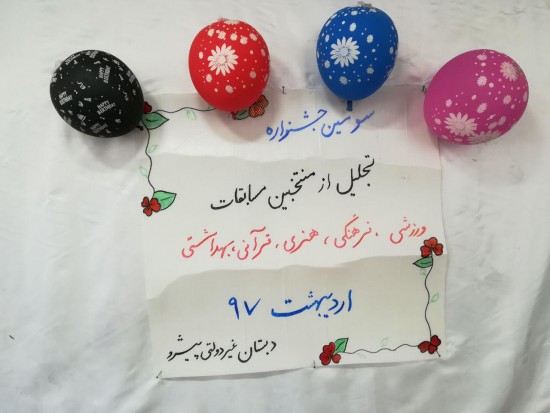 HAPPY BIRTHDAY
سومین جشنواره
تجلیل از منتخبین مسابقات
ورزشی ، فرهنگی ، هنری ، قرآنی ، بهداشتی
اردیبهشت ۹۷
دبستان غیر دولتی پیشرو